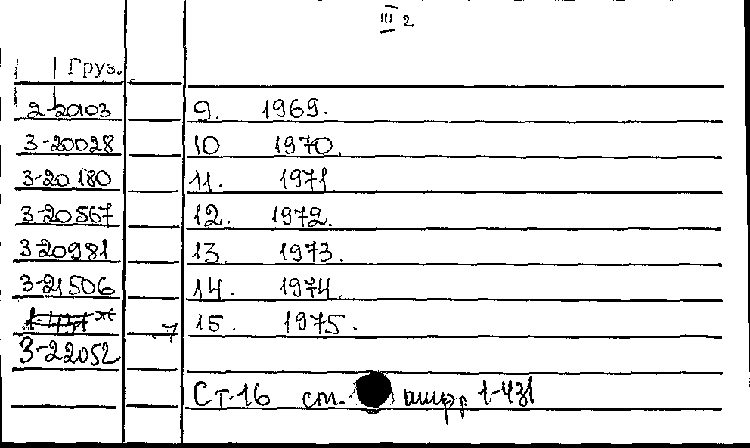 III 2
Груз.
2-20103 9. 1969.
3-20028 10 1970.
3-20180 11. 1971
3-20567 12. 1972.
3-20981 13. 1973.
3-21506 14. 1974.
1-431 7 15. 1975.
3-22052
Ст-16 см. шифр 1-431